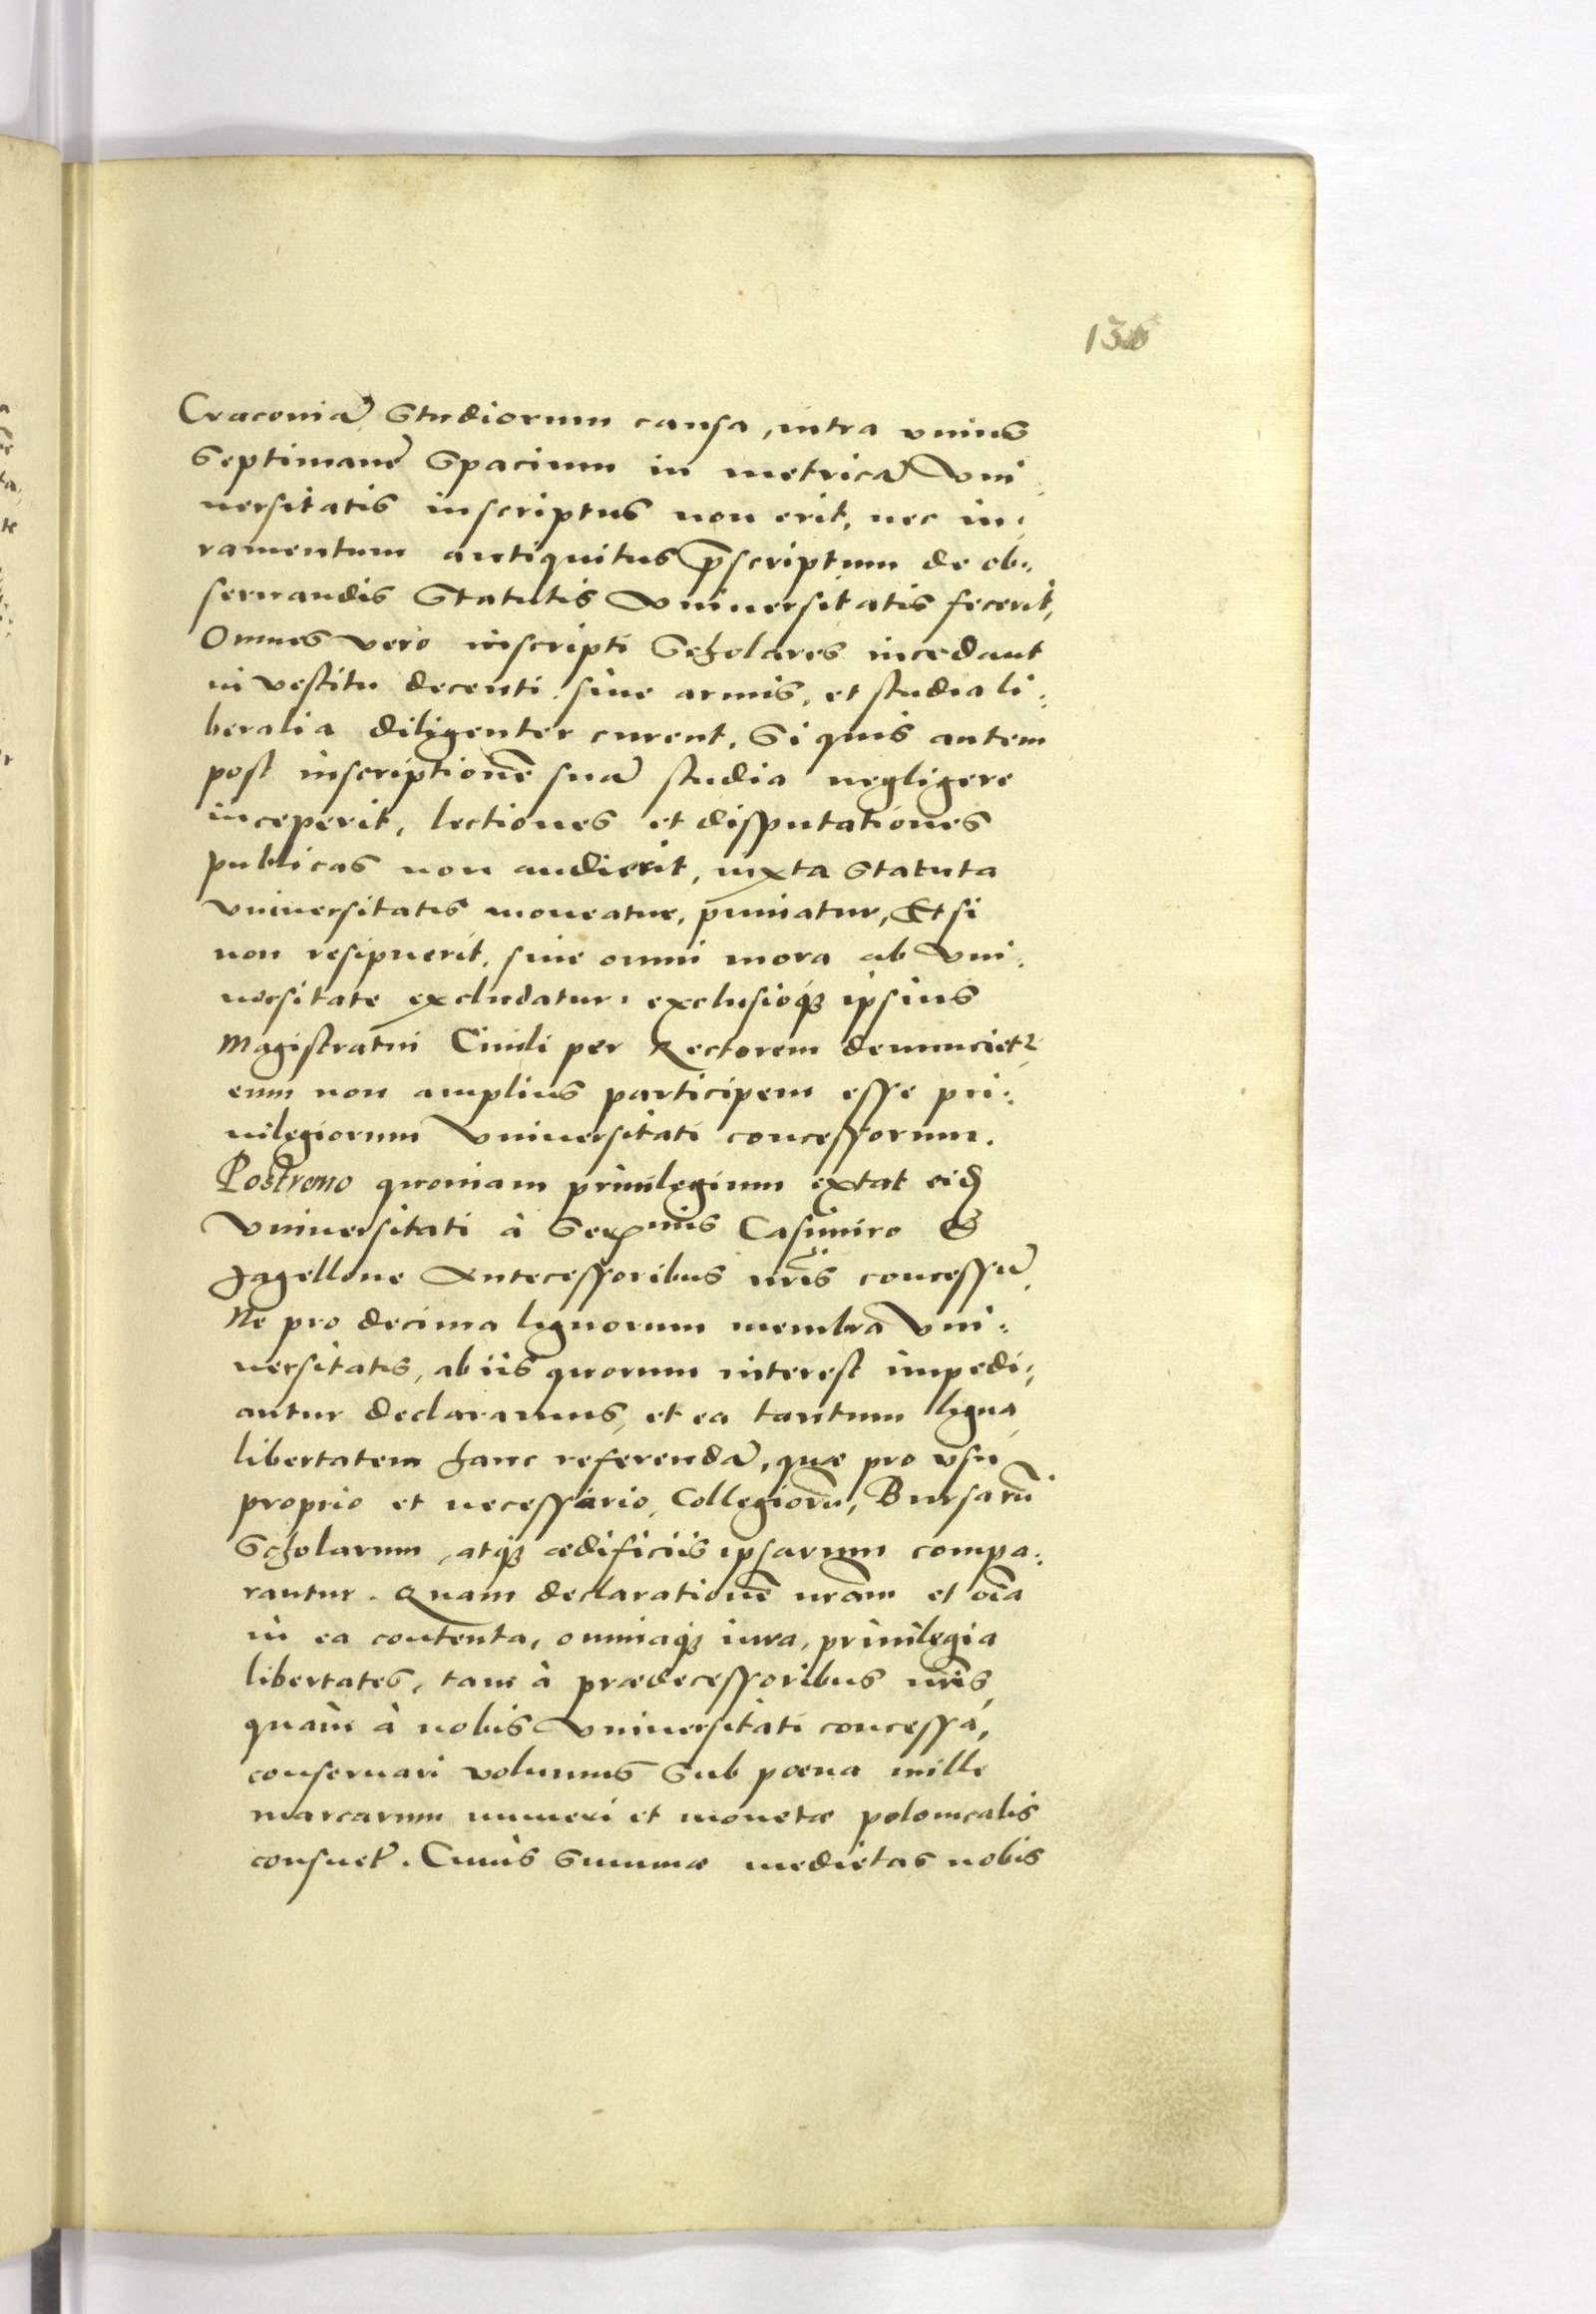 Cracouiā Studiorum causa, intra vnius
Septimanę Spacium in metricā Vni
uersitatis inscriptus non erit, nec iu:
ramentum antiquitus p̄scriptum de ob:
seruandis Statutis Vniuersitatis fecerit,
Omnes vero inscripti Scholares incedant
in vestitu decenti. sine armis, et studia li:
beralia diligenter curent. Si quis autem
post inscriptionē suā studia negligere
inceperit, lectiones et disputationes
publicas non audierit, iuxta Statuta
Vniuersitatis moueatur, puniatur, Et si
non resipuerit, sine omni mora ab Vni:
uersitate excludatur, exclusioq; ipsius
Magistratui Ciuili per Rectorem denuncietr
eum non amplius participem esse pri:
uilegiorum Vniuersitati concessorum.
Postremo quoniam priuilegium extat eid
Vniuersitati à Sermis Casimiro &
Jagellone Antecessoribus nr̄is concessū,
Ne pro decima lignorum membra Vni:
uersitatis, ab iis quorum interest impedi:
antur declaramus, et ea tantum ligna,
libertatem hanc referendā, quæ pro vsu
proprio et necessario, Collegiorū, Bursarū
Scholarum, atq; ædificiis ipsarum compa:
rantur. Quam declarationē nr̄am et oīa
in ea contenta, omniaq; iura, priuilegia
libertates, tam à prædecessoribus nr̄is,
quàm à nobis Vniuersitati concessa,
conseruari volumus Sub poena mille
marcarum numeri et monetæ polonicalis
consuet. Cuius Summæ medietas nobis